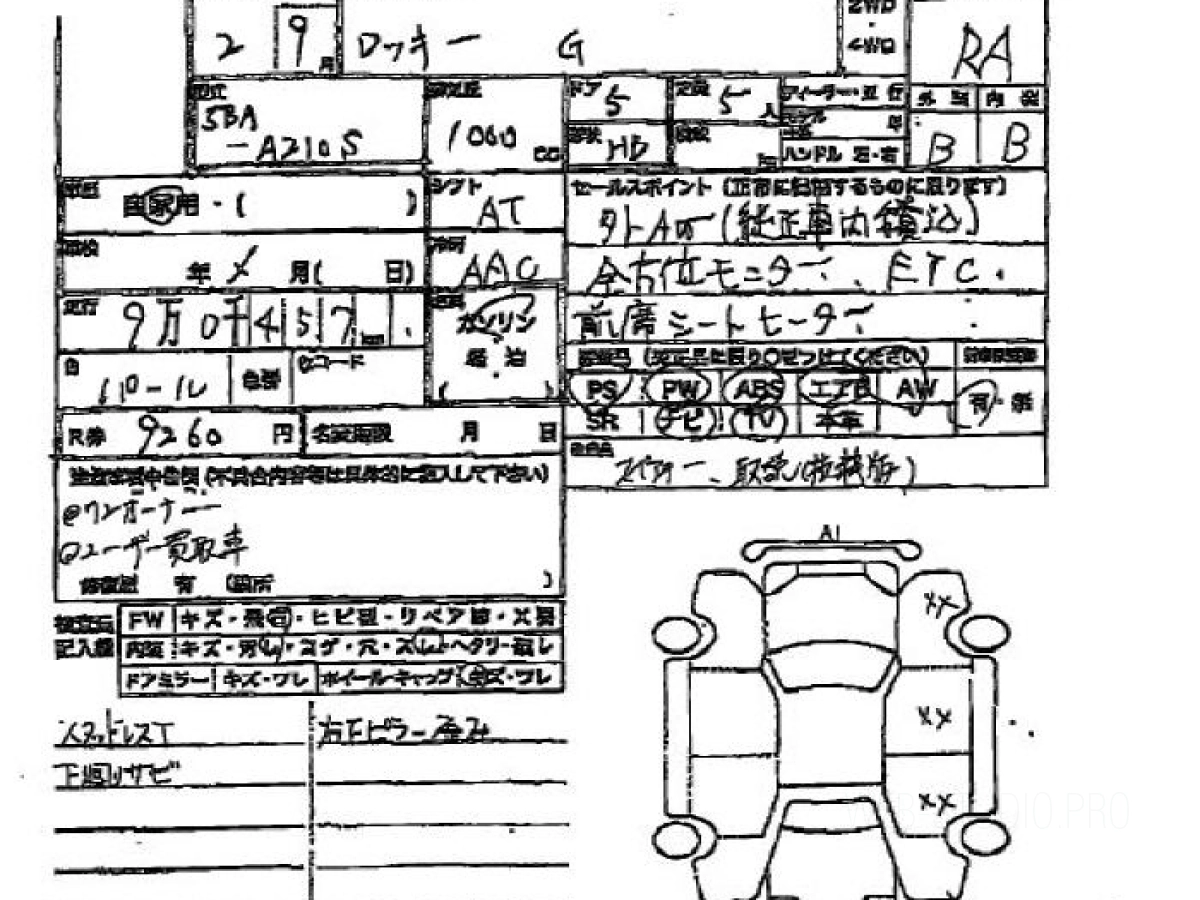 2WD
・
4WD
2 9月 ロッキー G
RA
型式 ドア 5 定員 5人 ディーラー・並行 外装 内装
5BA
-A210S
1000cc
形状 HB
ハンドル 左・右
B B
シフト セールスポイント (正常に記動するものに限ります)
自家用・( )
AT
外AW(純正車内積込)
年 月( 日)
冷房
AAC
全方位モニター、ETC.
走行
9万0千457km
ガソリン
軽油
( )
前席シートヒーター
色 パール 色替 Cコード
PS PW ABS エアB AW
有・無
SR ナビ TV 本革
R券 9260円 名変期限 月 日
スペアキー、取説(
注意事項申告欄 (不具合内容等は具体的に記入して下さい)
@ワンオーナー
@ユーザー買取車
修復歴 有 (箇所 )
検査員
記入欄
FW キズ・飛石・ヒビ・リペア跡・X要
内装 キズ・汚れ・コゲ・穴・スレ・ヘタリ
ドアミラー キズ・ワレ ホイール・キャップ キズ・ワレ
スタッドレスT
右Fピラー歪み
下廻りサビ
A1
XX
XX
XX